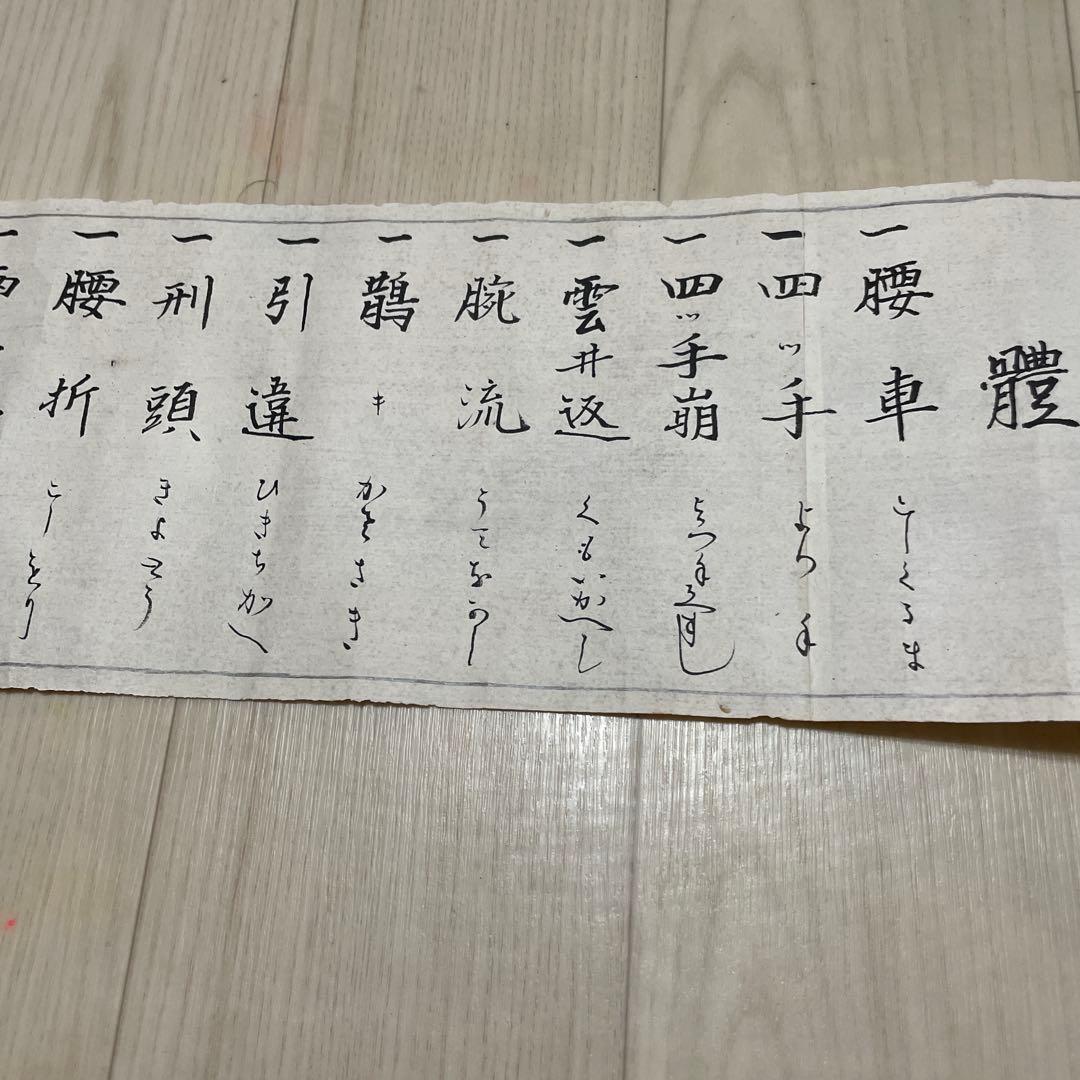 體
一 腰車 こしくるま
一 四ツ手 よつ手
一 四ツ手崩 よつ手くつし
一 雲井返 くもいかへし
一 腕流 うてなかし
一 鵲 キ かささき
一 引違 ひきちかへ
一 刑頭 きよとう
一 腰折 こしをり
一